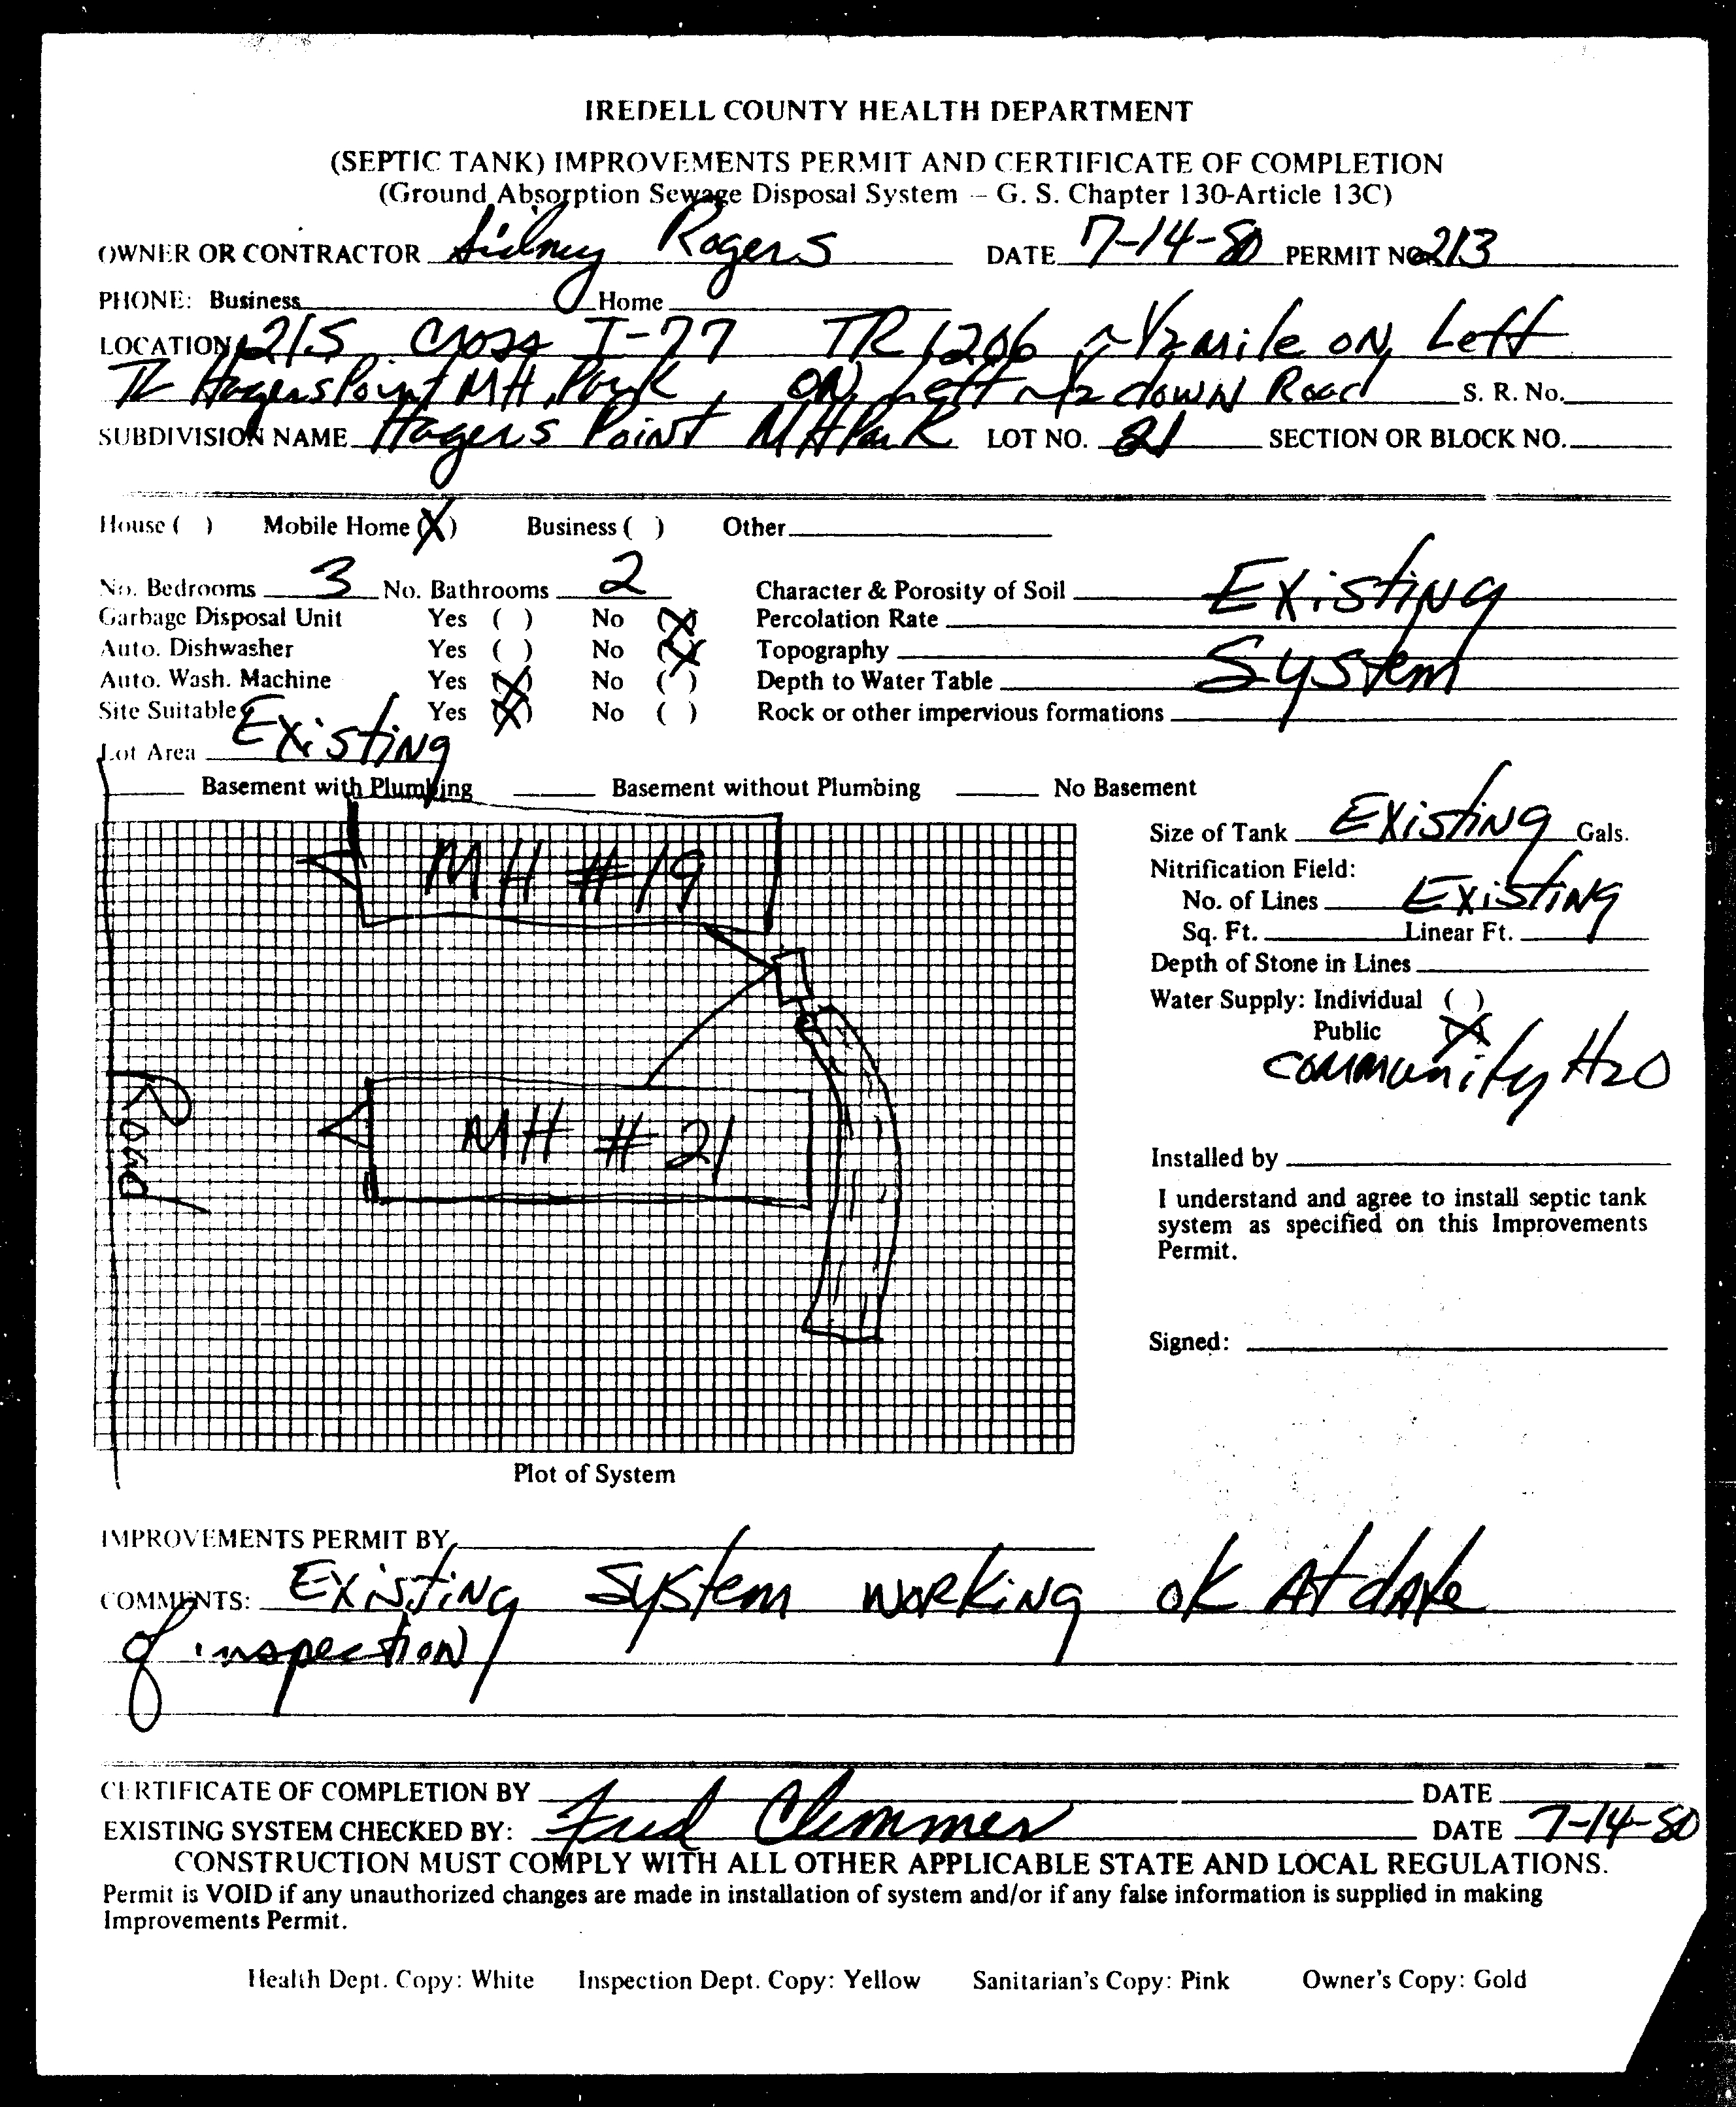 IREDELL COUNTY HEALTH DEPARTMENT
(SEPTIC TANK) IMPROVEMENTS PERMIT AND CERTIFICATE OF COMPLETION
(Ground Absorption Sewage Disposal System – G. S. Chapter 130-Article 13C)
OWNER OR CONTRACTOR Sidney Rogers DATE 7-14-80 PERMIT NO 213
PHONE: Business Home
LOCATION 215 Cross I-77 TR 1206 ~ 1/2 mile on Left
TL Hagers Point MH Park, on Left ~ 1/2 down Road S. R. No.
SUBDIVISION NAME Hagers Point MH Park LOT NO. 21 SECTION OR BLOCK NO.
House ( ) Mobile Home (X) Business ( ) Other
No. Bedrooms 3 No. Bathrooms 2 Character & Porosity of Soil Existing
Garbage Disposal Unit Yes ( ) No (X) Percolation Rate
Auto. Dishwasher Yes ( ) No (X) Topography System
Auto. Wash. Machine Yes (X) No ( ) Depth to Water Table
Site Suitable Yes (X) No ( ) Rock or other impervious formations
Lot Area Existing
Basement with Plumbing Basement without Plumbing No Basement
Size of Tank Existing Gals.
Nitrification Field:
No. of Lines Existing
Sq. Ft. Linear Ft.
Depth of Stone in Lines
Water Supply: Individual ( )
Public (X)
community H2O
MH #19
MH # 21
Road
Installed by
I understand and agree to install septic tank
system as specified on this Improvements
Permit.
Signed:
Plot of System
IMPROVEMENTS PERMIT BY
COMMENTS: Existing system working ok At date
of inspection
CERTIFICATE OF COMPLETION BY DATE
EXISTING SYSTEM CHECKED BY: Fred Clemmer DATE 7-14-80
CONSTRUCTION MUST COMPLY WITH ALL OTHER APPLICABLE STATE AND LOCAL REGULATIONS.
Permit is VOID if any unauthorized changes are made in installation of system and/or if any false information is supplied in making
Improvements Permit.
Health Dept. Copy: White Inspection Dept. Copy: Yellow Sanitarian's Copy: Pink Owner's Copy: Gold